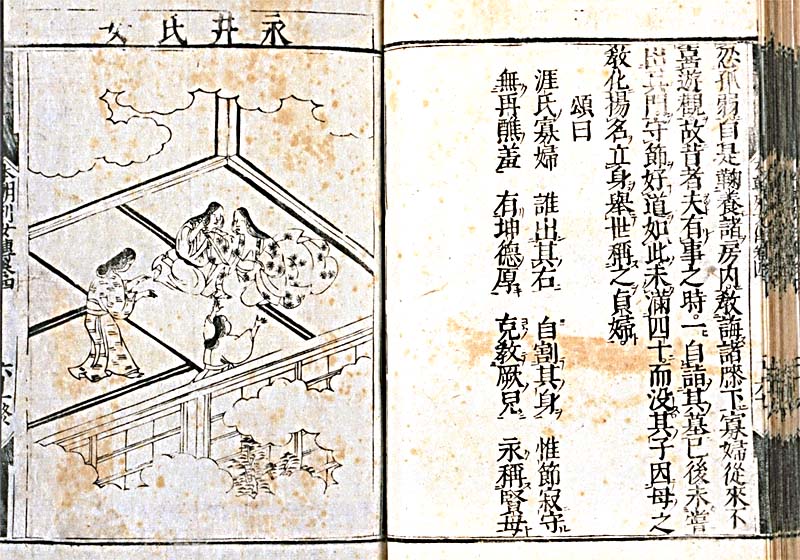 孤弱自是鞠養諸房内教誨諸膝下寡婦從來不
喜遊觀故昔者夫有事之時。一自詣其墓已後未嘗
出其門守節好道如此未滿四十而没其子因母之
教化揚名立身舉世稱之貞婦。
頌曰
涯氏寡婦 誰出其右 自割其身 惟節寂守
無再醮羞 有坤德厚 克教厥兒 永稱賢母
永井氏女
本朝列女傳卷四